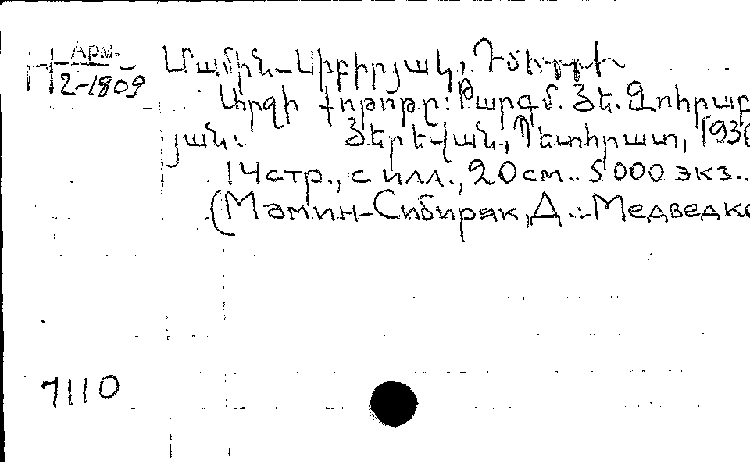 Арм.
2-1809
Մամին-Սիբիրյակ, Դմիտրի
Արջի քոթոթը: Թարգմ. Հե. Զուիրաբ
յան: Յերեվան, Պետհրատ, 193
14стр., с илл., 20см.. 5000 экз..
(Мамин-Сибиряк, Д. :-Медведко
7110